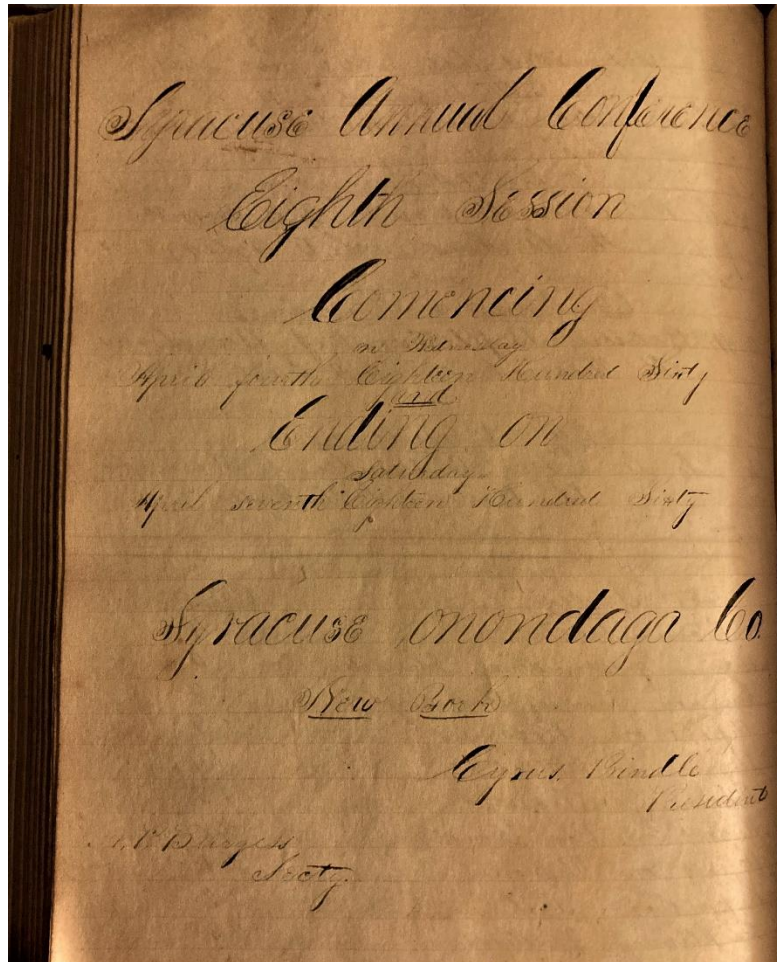 Syracuse Annual Conference
Eighth Session
Comencing
on Wednesday
April fourth Eighteen Hundred Sixty
and
Ending on
Saturday
April seventh Eighteen Hundred Sixty
Syracuse Onondaga Co.
New York
Cyrus Prindle
President
Burgess
Secty